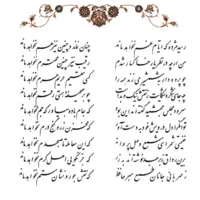 رسید مژده که ایام غم نخواهد ماند چنان نماند و چنین نیز هم نخواهد ماند
من ار چه در نظر یار خاکسار شدم رقیب نیز چنین محترم نخواهد ماند
چو پرده دار به شمشیر می زند همه را کسی مقیم حریم حرم نخواهد ماند
چه جای شکر و شکایت ز نقش نیک و بد است چو بر صحیفه هستی رقم نخواهد ماند
سرود مجلس جمشید گفته اند این بود که جام باده بیاور که جم نخواهد ماند
توانگرا دل درویش خود به دست آور که مخزن زر و گنج و درم نخواهد ماند
غنیمتی شمر ای شمع وصل پروانه که این معامله تا صبحدم نخواهد ماند
برین رواق زبرجد نوشته اند به زر که جز نکویی اهل کرم نخواهد ماند
ز مهربانی جانان طمع مبر حافظ که نقش جور و نشان ستم نخواهد ماند